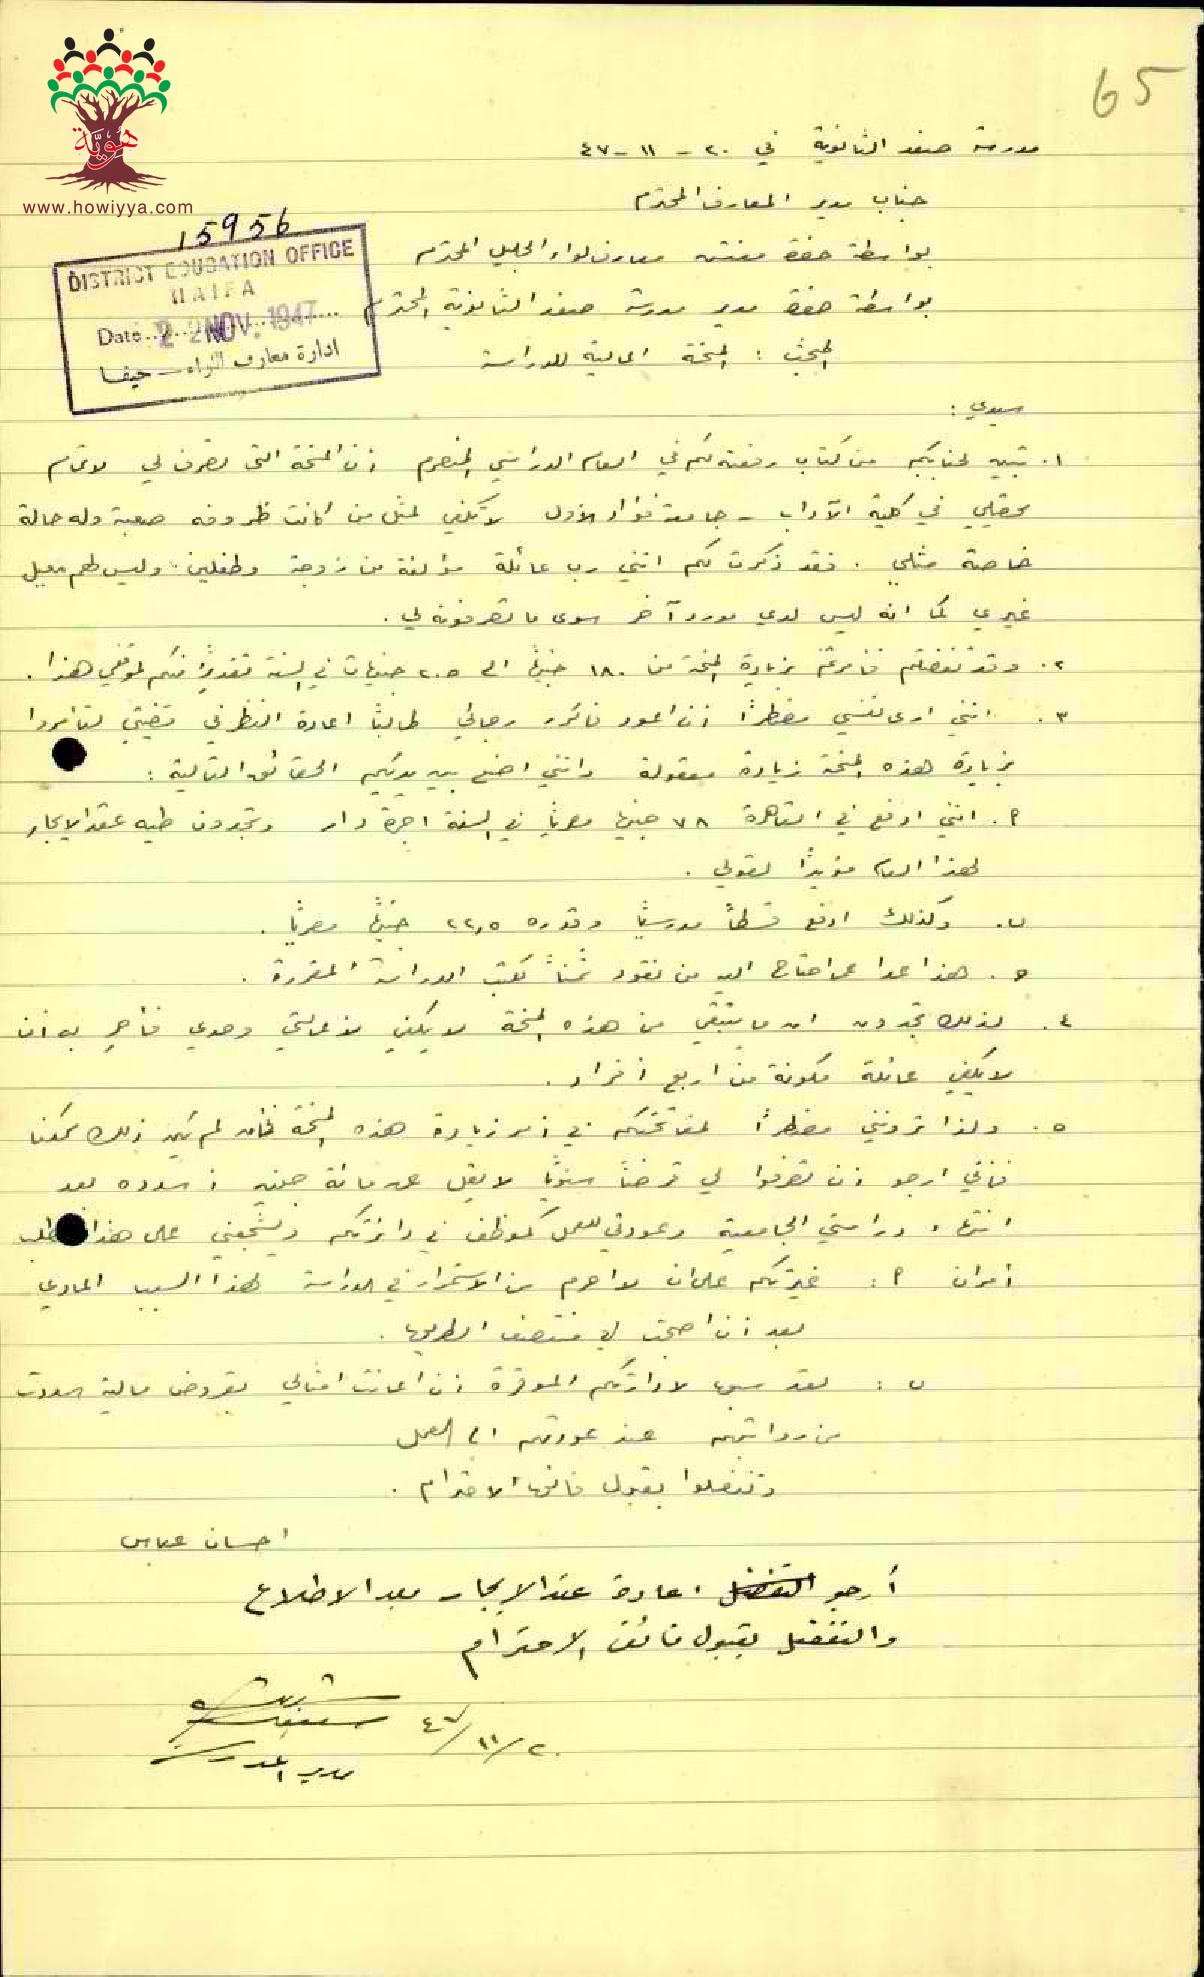 65
هوية
www.howiyya.com
مدرسة صفد الثانوية في ٢٠ - ١١ - ٤٧
جناب مدير المعارف المحترم
15956
DISTRICT EDUCATION OFFICE
HAIFA
Date 22 NOV. 1947
ادارة معارف اللواء - حيفا
بواسطة حضرة مفتش معارف لواء الجليل المحترم
بواسطة حضرة مدير مدرسة صفد الثانوية المحترم
المبحث : المنحة المالية للدراسة
سيدي :
١. تبين لجنابكم من كتاب رفعته لكم في العام الدراسي المنصرم أن المنحة التي تصرف لي لاتمام
تحصيلي في كلية الآداب - جامعة فؤاد الاول لا تكفي لمثل من كانت ظروفه صعبة وله حالة
خاصة مثلي . فقد ذكرت لكم انني رب عائلة مؤلفة من زوجة وطفلين . وليس لهم معيل
غيري كما انه ليس لدي مورد آخر سوى ما تصرفونه لي .
٢. وقد تفضلتم فأمرتم بزيادة المنحة من ١٨٠ جنيهاً الى ٢٠٥ جنيهات في السنة تقديراً منكم لموقفي هذا .
٣. انني ارى نفسي مضطراً أن اعود فأكرر رجائي طالباً اعادة النظر في قضيتي لتأمروا
بزيادة هذه المنحة زيادة معقولة وانني اضع بين يديكم الحقائق التالية :
٩. انني ادفع في القاهرة ٧٨ جنيهاً مصرياً في السنة اجرة دار وتجدون طيه عقد الايجار
لهذا العام مؤيداً لقولي .
ب. وكذلك ادفع قسطاً مدرسياً وقدره ٢٢,٥ جنيهاً مصرياً .
ح. هذا عدا عما احتاج اليه من نقود ثمناً لكتب الدراسة المقررة .
٤. لذلك تجدون ان ما يتبقى من هذه المنحة لا يكفي لاعالتي وحدي فأحرِ به أن
لا يكفي عائلة مكونة من اربع أفراد .
٥. ولذا ترونني مضطراً لمفاتحتكم في أمر زيادة هذه المنحة فإن لم يكن ذلك ممكنا
فإني ارجو أن تصرفوا لي قرضاً سنوياً لا يقل عن مائة جنيه أسدده بعد
انتهاء دراستي الجامعية وعودتي للعمل كموظف في دائرتكم ويشجعني على هذا الطلب
أمران ٩ : غيرتكم على ان لا احرم من الاستمرار في الدراسة لهذا السبب المادي
بعد أن اصبحت في منتصف الطريق .
ب : لقد سبق لادارتكم الموقرة أن اعانت امثالي بقروض مالية سددت
من رواتبهم عند عودتهم الى العمل
وتفضلوا بقبول فائق الاحترام .
احسان عباس
أرجو التفضل اعادة عقد الايجار بعد الاطلاع
والتفضل بقبول فائق الاحترام
٢٠/١١/٤٧
مدير المدرسة